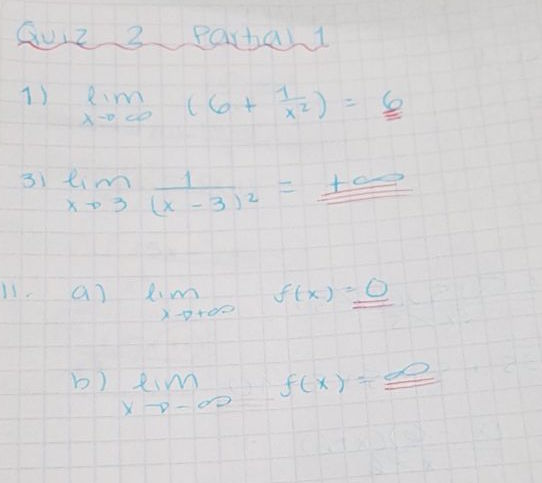 Quiz 2 Partial 1
1) lim x→∞ (6 + 1/x²) = 6
3) lim x→3 1/(x - 3)² = +∞
11. a) lim x→+∞ f(x) = 0
b) lim x→-∞ f(x) = ∞